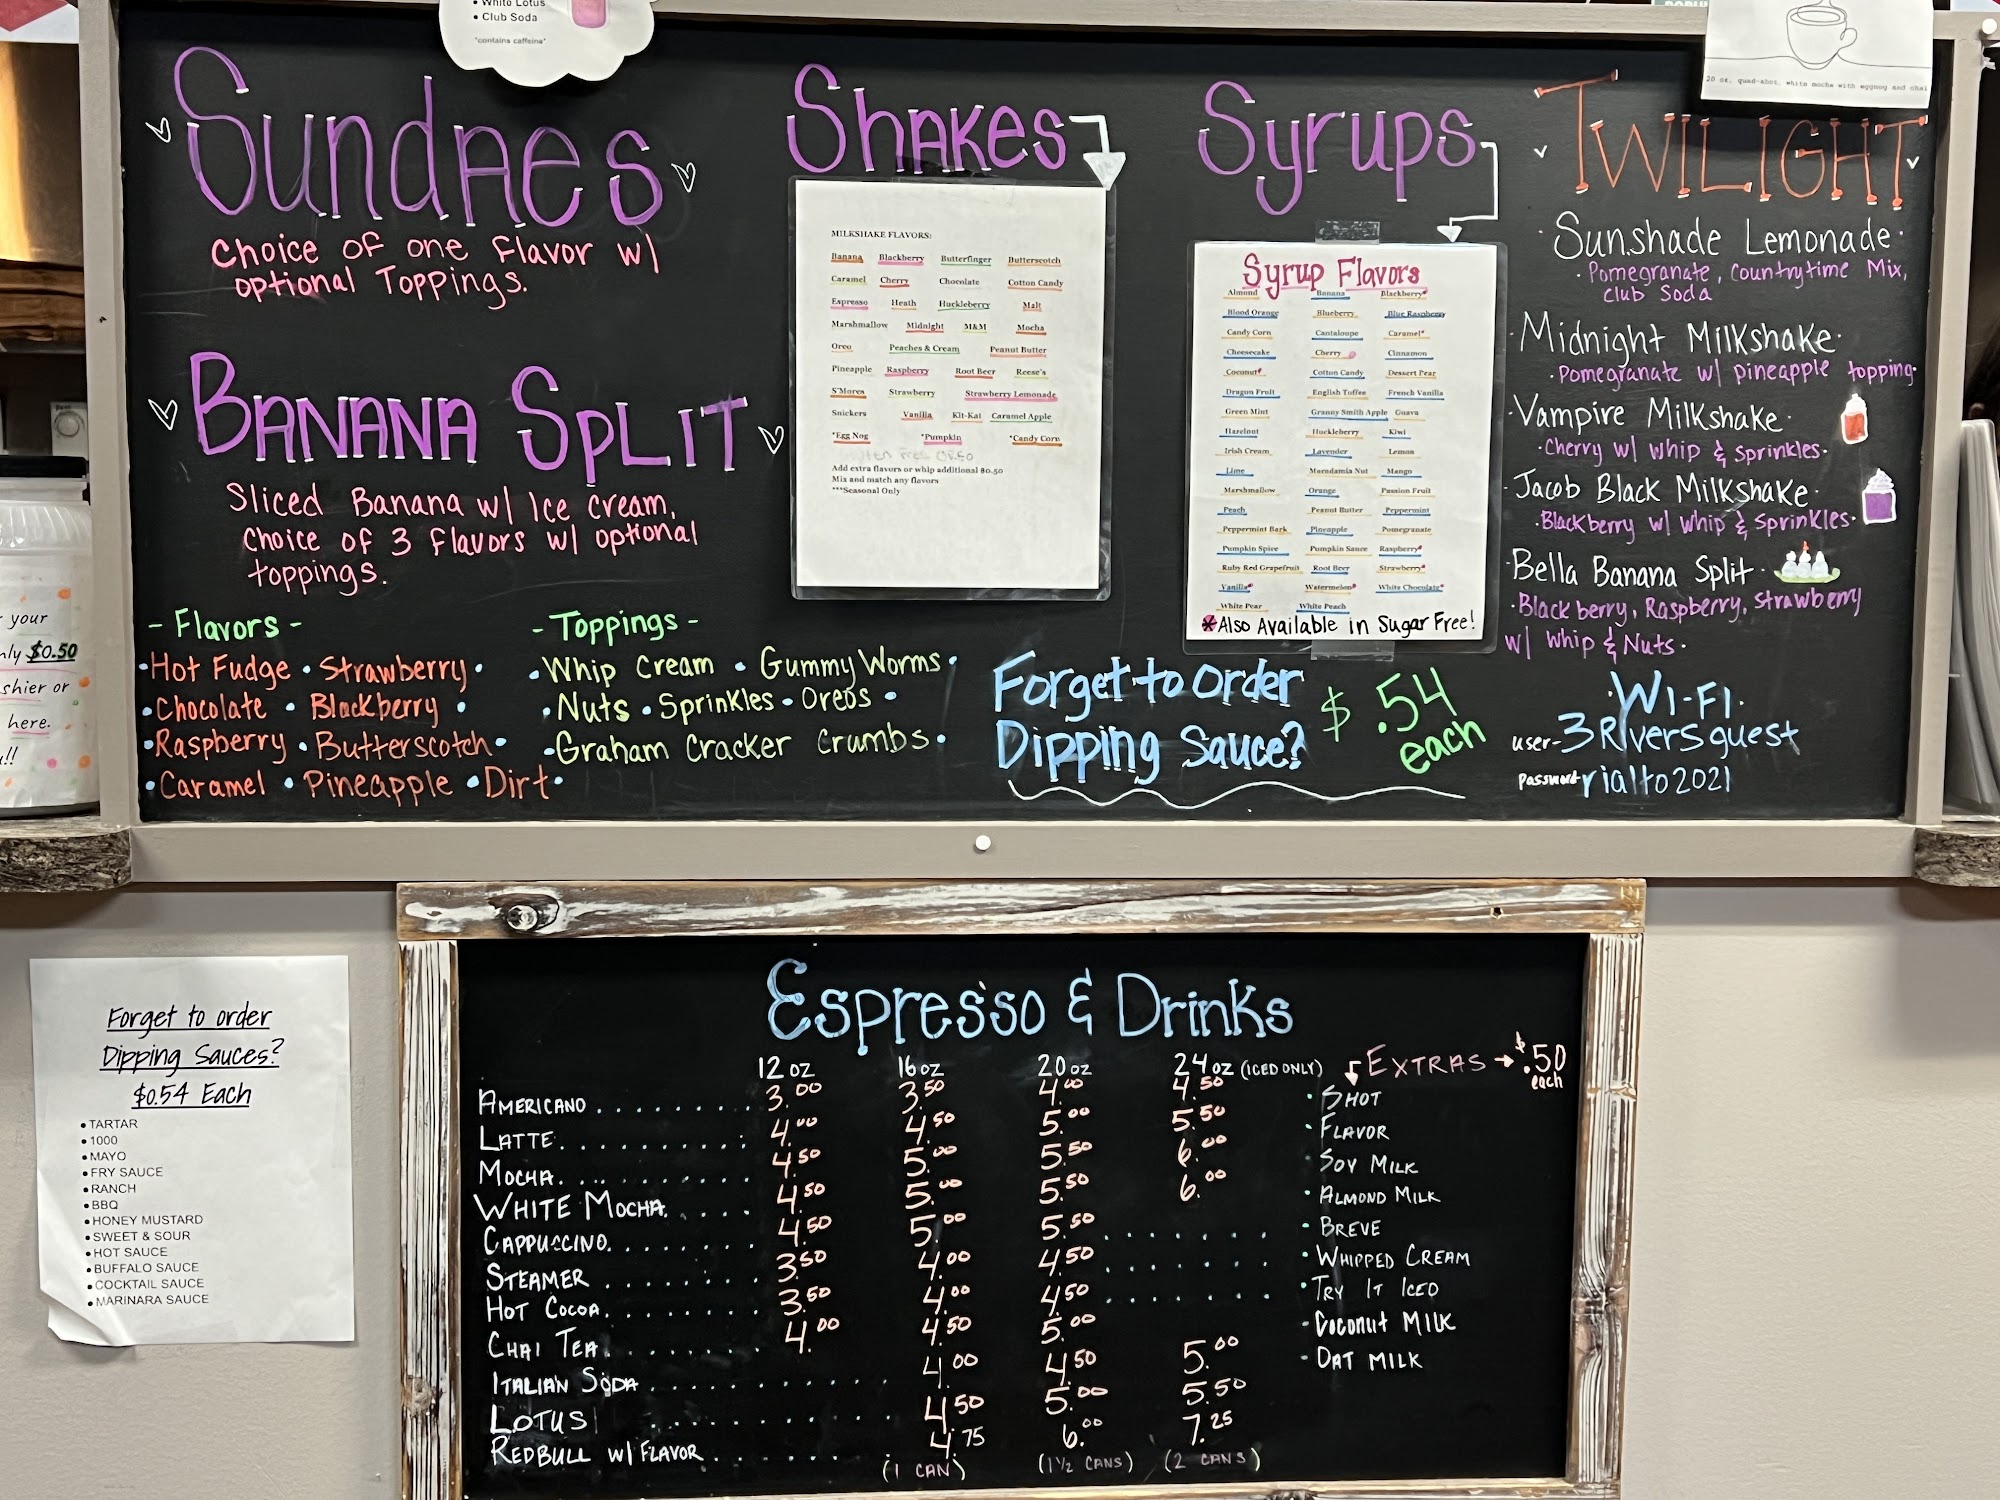 • White Lotus
• Club Soda
*contains caffeine*
20 oz, quad-shot, white mocha with eggnog and chai
Sundaes
Choice of one Flavor w/
optional Toppings.
Banana Split
Sliced Banana w/ Ice Cream,
Choice of 3 Flavors w/ optional
toppings.
- Flavors -
• Hot Fudge • Strawberry •
• Chocolate • Blackberry •
• Raspberry • Butterscotch •
• Caramel • Pineapple • Dirt •
- Toppings -
• Whip Cream • Gummy Worms •
• Nuts • Sprinkles • Oreos •
• Graham Cracker Crumbs •
Shakes
MILKSHAKE FLAVORS:
Banana Blackberry Butterfinger Butterscotch
Caramel Cherry Chocolate Cotton Candy
Espresso Heath Huckleberry Malt
Marshmallow Midnight M&M Mocha
Oreo Peaches & Cream Peanut Butter
Pineapple Raspberry Root Beer Reese's
S'Mores Strawberry Strawberry Lemonade
Snickers Vanilla Kit-Kat Caramel Apple
*Egg Nog *Pumpkin *Candy Corn
Add extra flavors or whip additional $0.50
Mix and match any flavors
***Seasonal Only
Syrups
Syrup Flavors
Almond Banana Blackberry*
Blood Orange Blueberry Blue Raspberry
Candy Corn Cantaloupe Caramel*
Cheesecake Cherry Cinnamon
Coconut* Cotton Candy Dessert Pear
Dragon Fruit English Toffee French Vanilla
Green Mint Granny Smith Apple Guava
Hazelnut Huckleberry Kiwi
Irish Cream Lavender Lemon
Lime Macadamia Nut Mango
Marshmallow Orange Passion Fruit
Peach Peanut Butter Peppermint
Peppermint Bark Pineapple Pomegranate
Pumpkin Spice Pumpkin Sauce Raspberry*
Ruby Red Grapefruit Root Beer Strawberry*
Vanilla* Watermelon* White Chocolate*
White Pear White Peach
*Also Available in Sugar Free!
Twilight
• Sunshade Lemonade •
• Pomegranate, Countrytime Mix,
Club Soda
• Midnight Milkshake •
• Pomegranate w/ pineapple topping •
• Vampire Milkshake •
• Cherry w/ whip & sprinkles •
• Jacob Black Milkshake •
• Blackberry w/ whip & sprinkles •
• Bella Banana Split •
• Blackberry, Raspberry, Strawberry
w/ Whip & Nuts •
Forget to order
Dipping Sauce?
$ .54
each
• Wi-Fi •
user- 3Riversguest
password- rialto2021
your
$0.50
shier or
here.
Forget to order
Dipping Sauces?
$0.54 Each
• TARTAR
• 1000
• MAYO
• FRY SAUCE
• RANCH
• BBQ
• HONEY MUSTARD
• SWEET & SOUR
• HOT SAUCE
• BUFFALO SAUCE
• COCKTAIL SAUCE
• MARINARA SAUCE
Espresso & Drinks
12 oz 16 oz 20 oz 24 oz (ICED ONLY)
AMERICANO 3.00 3.50 4.00 4.50
LATTE 4.00 4.50 5.00 5.50
MOCHA 4.50 5.00 5.50 6.00
WHITE MOCHA 4.50 5.00 5.50 6.00
CAPPUCCINO 4.50 5.00 5.50
STEAMER 3.50 4.00 4.50
HOT COCOA 3.50 4.00 4.50
CHAI TEA 4.00 4.50 5.00
ITALIAN SODA 4.00 4.50 5.00
LOTUS 4.50 5.00 5.50
REDBULL W/ FLAVOR 4.75 6.00 7.25
(1 CAN) (1½ CANS) (2 CANS)
EXTRAS → $.50
each
• SHOT
• FLAVOR
• SOY MILK
• ALMOND MILK
• BREVE
• WHIPPED CREAM
• TRY IT ICED
• COCONUT MILK
• OAT MILK